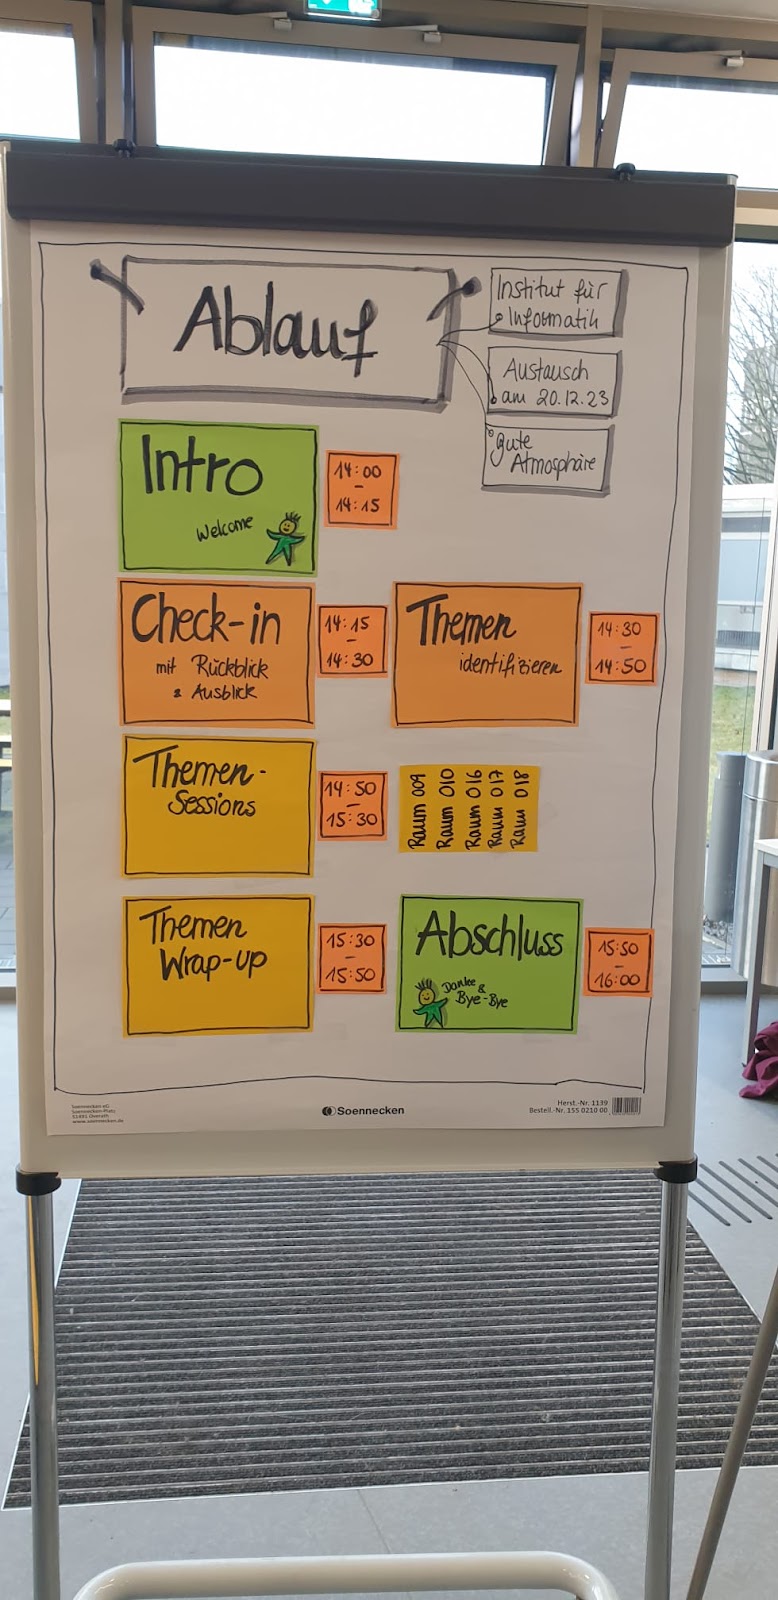 Ablauf
Institut für
Informatik
Austausch
am 20.12.23
gute
Atmosphäre
Intro
Welcome
14:00
–
14:15
Check-in
mit Rückblick
& Ausblick
14:15
–
14:30
Themen
identifizieren
14:30
–
14:50
Themen-
Sessions
14:50
–
15:30
Raum 009
Raum 010
Raum 016
Raum 017
Raum 018
Themen
Wrap-up
15:30
–
15:50
Abschluss
Danke &
Bye-Bye
15:50
–
16:00
Soennecken eG
Soennecken-Platz
51491 Overath
www.soennecken.de
Soennecken
Herst.-Nr. 1139
Bestell.-Nr. 155 0210 00